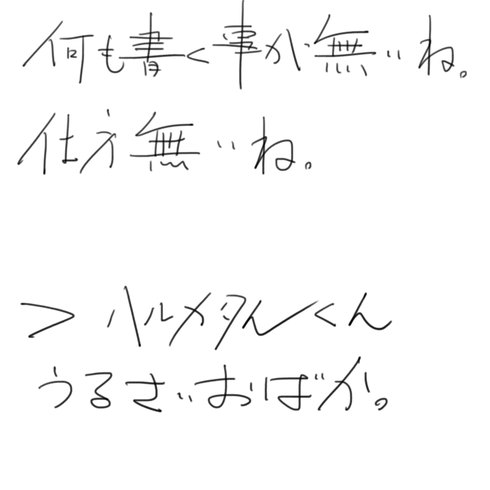 何も書く事が無いね。
仕方無いね。
＞ハルメタんくん
うるさいおばか。